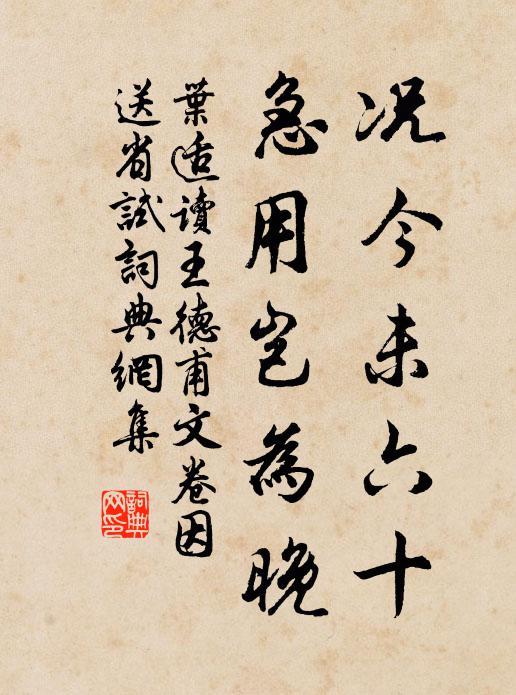 况今未六十
急用岂為晚
葉适讀王德甫文卷因
送省試詞典網集
詞典網印